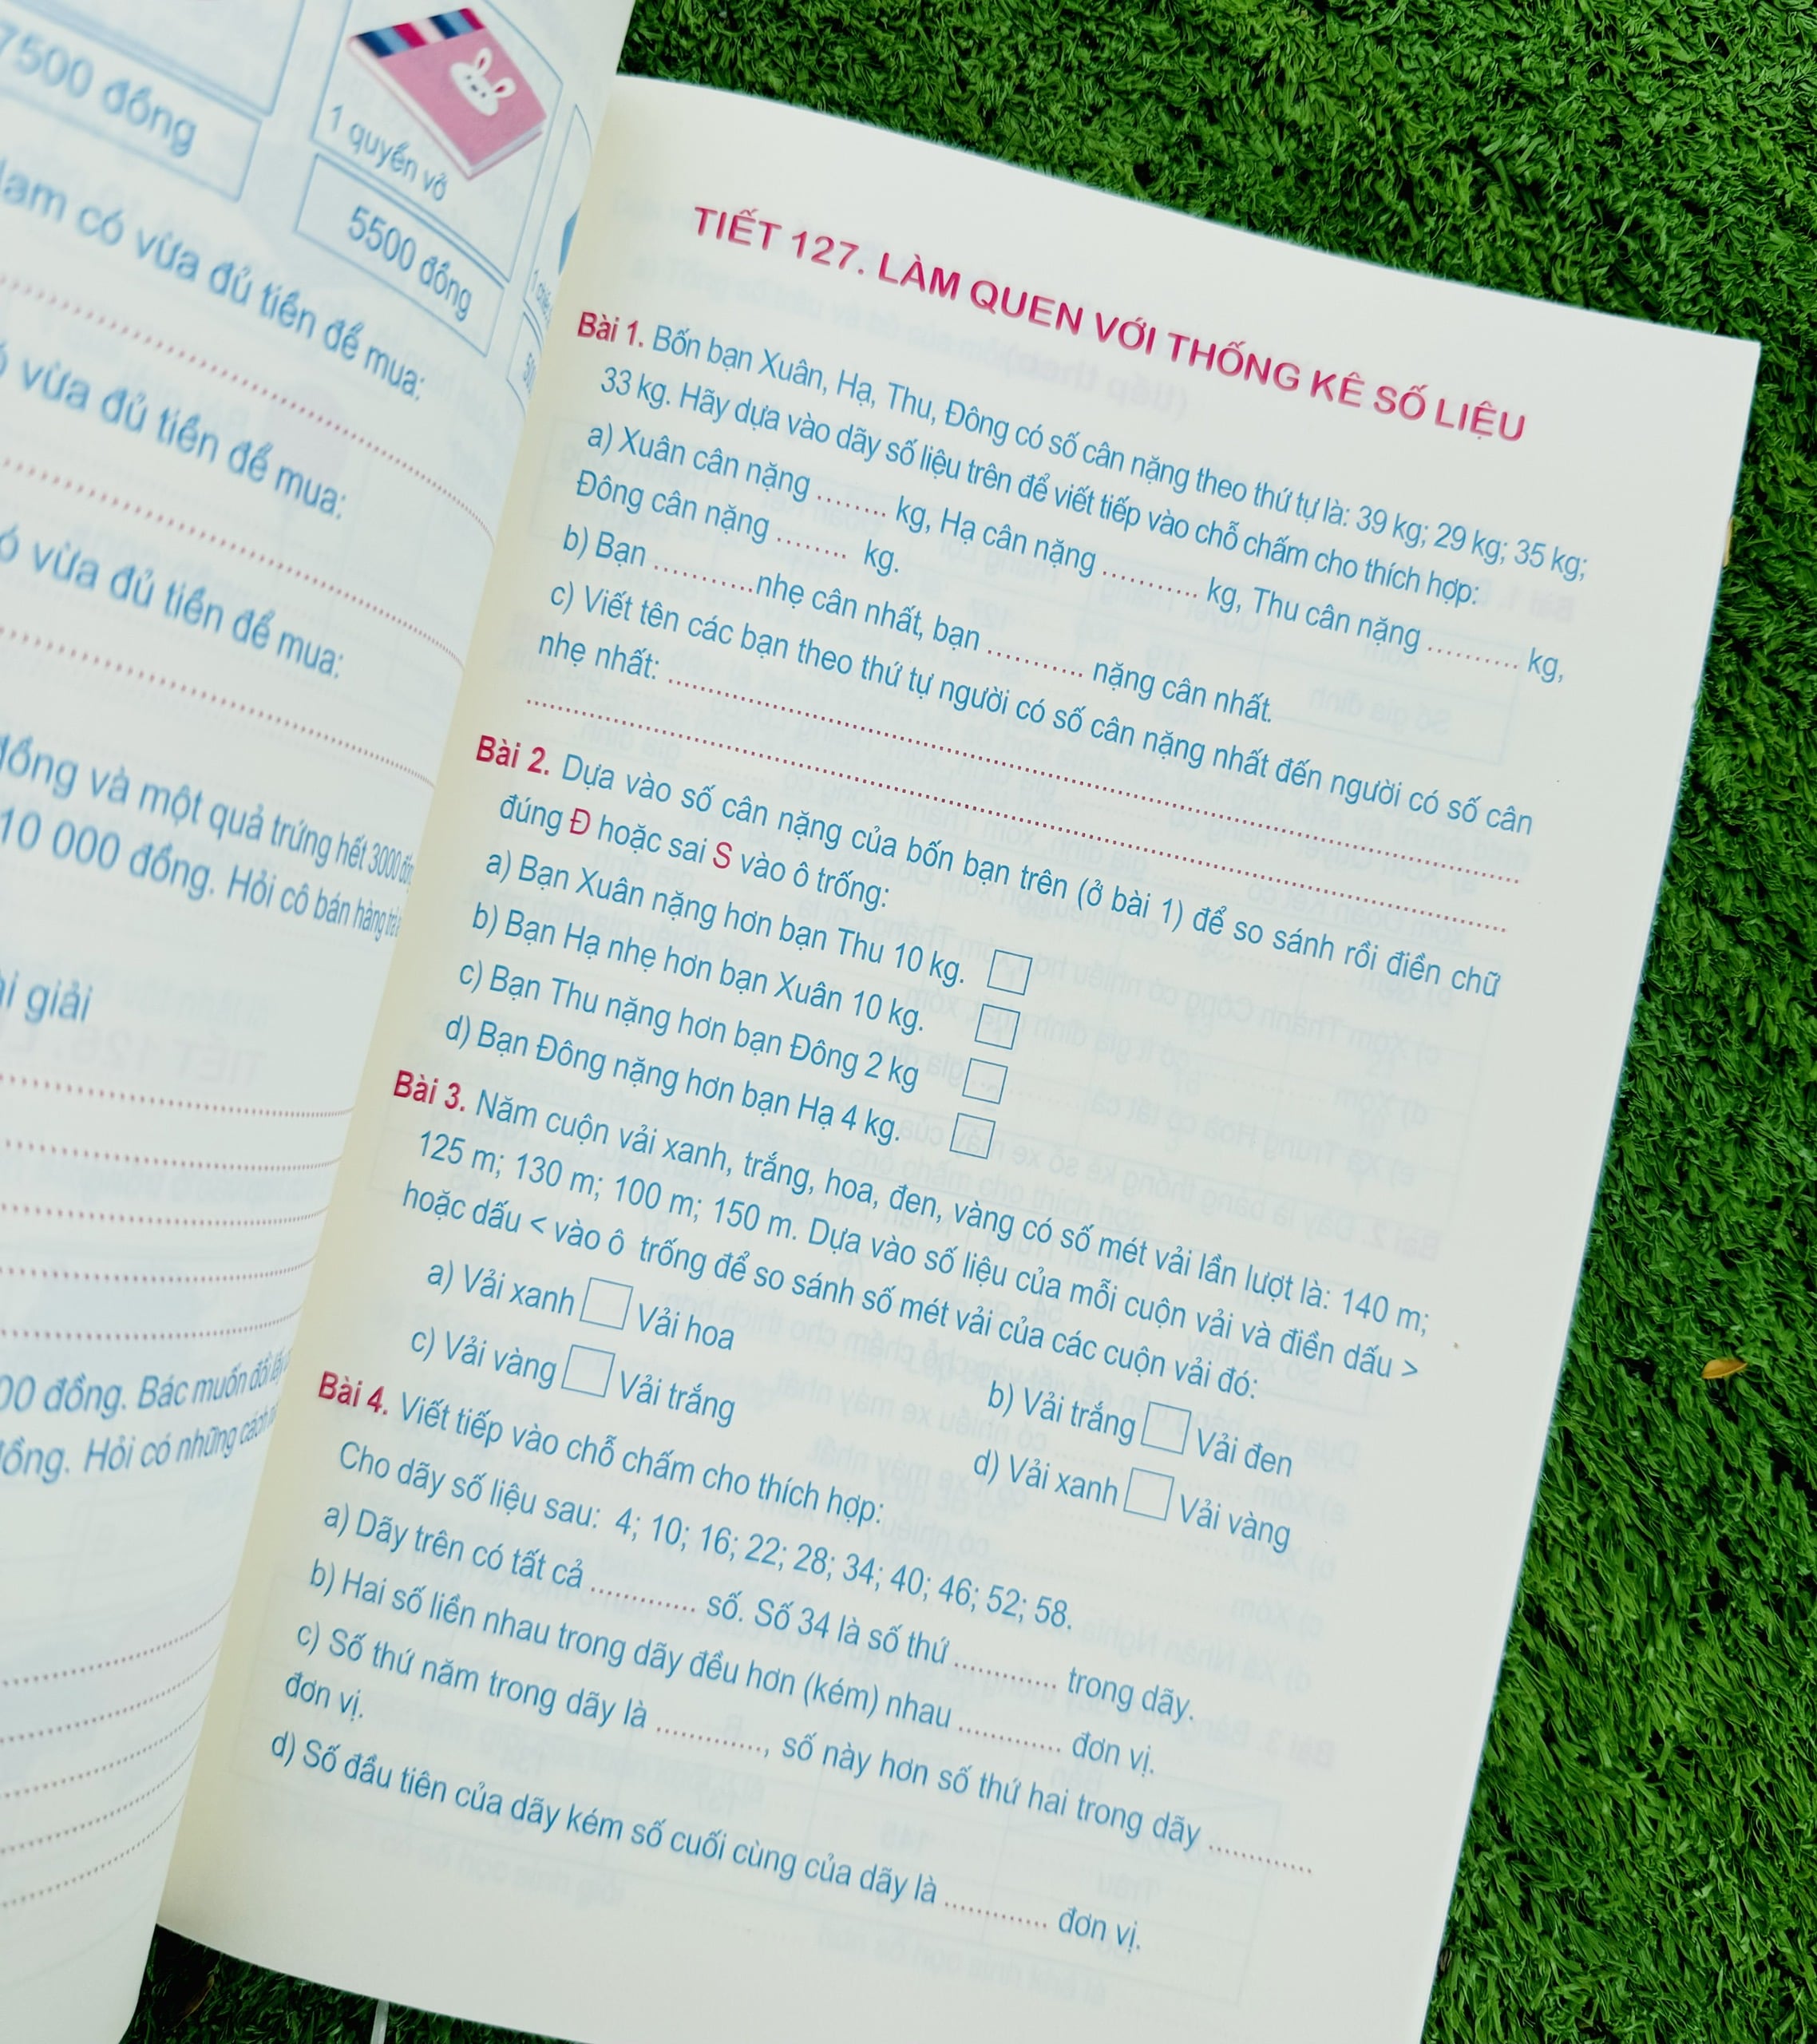 7500 đồng
1 quyển vở
5500 đồng
có vừa đủ tiền để mua:
vừa đủ tiền để mua:
vừa đủ tiền để mua:
đồng và một quả trứng hết 3000
10 000 đồng. Hỏi cô bán hàng
giải
đồng. Bác muốn đổi lấy
Hỏi có những cách
TIẾT 127. LÀM QUEN VỚI THỐNG KÊ SỐ LIỆU
Bài 1. Bốn bạn Xuân, Hạ, Thu, Đông có số cân nặng theo thứ tự là: 39 kg; 29 kg; 35 kg;
33 kg. Hãy dựa vào dãy số liệu trên để viết tiếp vào chỗ chấm cho thích hợp:
a) Xuân cân nặng ........ kg, Hạ cân nặng .......... kg, Thu cân nặng .......... kg,
Đông cân nặng ........ kg.
b) Bạn ...........nhẹ cân nhất, bạn .......... nặng cân nhất.
c) Viết tên các bạn theo thứ tự người có số cân nặng nhất đến người có số cân
nhẹ nhất: ..........................................................................................
..........................................................................................
Bài 2. Dựa vào số cân nặng của bốn bạn trên (ở bài 1) để so sánh rồi điền chữ
đúng Đ hoặc sai S vào ô trống:
a) Bạn Xuân nặng hơn bạn Thu 10 kg.
b) Bạn Hạ nhẹ hơn bạn Xuân 10 kg.
c) Bạn Thu nặng hơn bạn Đông 2 kg
d) Bạn Đông nặng hơn bạn Hạ 4 kg.
Bài 3. Năm cuộn vải xanh, trắng, hoa, đen, vàng có số mét vải lần lượt là: 140 m;
125 m; 130 m; 100 m; 150 m. Dựa vào số liệu của mỗi cuộn vải và điền dấu >
hoặc dấu < vào ô trống để so sánh số mét vải của các cuộn vải đó:
a) Vải xanh Vải hoa
b) Vải trắng Vải đen
c) Vải vàng Vải trắng
d) Vải xanh Vải vàng
Bài 4. Viết tiếp vào chỗ chấm cho thích hợp:
Cho dãy số liệu sau: 4; 10; 16; 22; 28; 34; 40; 46; 52; 58.
a) Dãy trên có tất cả ............ số. Số 34 là số thứ ............ trong dãy.
b) Hai số liền nhau trong dãy đều hơn (kém) nhau ............ đơn vị.
c) Số thứ năm trong dãy là ............, số này hơn số thứ hai trong dãy ............
đơn vị.
d) Số đầu tiên của dãy kém số cuối cùng của dãy là ............ đơn vị.